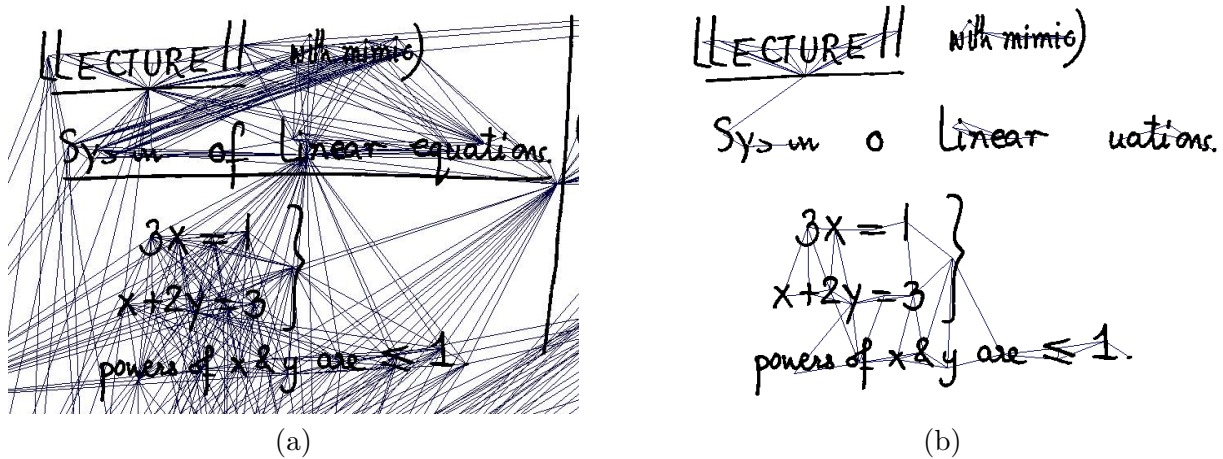 LECTURE 11 with mimic)
Sys m of Linear equations.
3x = 1
x+2y=3
powers of x & y are ≤ 1.
(a)
LECTURE 11 with mimic)
Sys m o Linear uations.
3x = 1
x+2y=3
powers of x & y are ≤ 1.
(b)